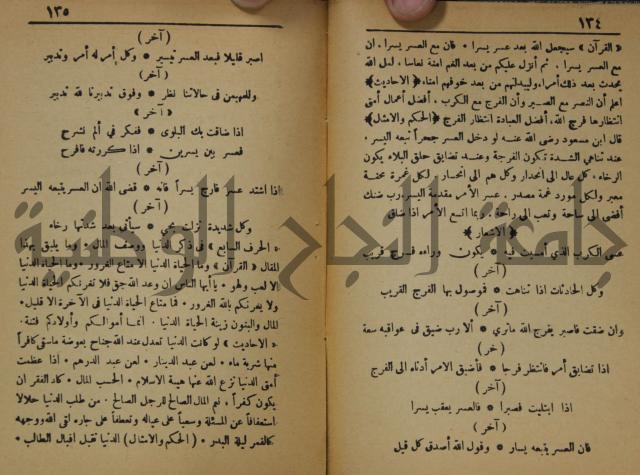 ١٣٤
« القرآن » سيجعل الله بعد عسر يسرا • فان مع العسر يسرا ، ان
مع العسر يسرا . ثم أنزل عليكم من بعد الغم امنة نعاسا ، لعل الله
يحدث بعد ذلك أمرا ، وليبدلنهم من بعد خوفهم امنا ، ﴿ الاحاديث ﴾
اعلم أن النصر مع الصبر وأن الفرج مع الكرب . أفضل أعمال أمتي
انتظارها فرج الله ، أفضل العبادة انتظار الفرج ﴿ الحكم والامثال ﴾
قال ابن مسعود رضي الله عنه لو دخل العسر جحراً تبعه اليسر .
عند تناهي الشدة تكون الفرجة وعند تضايق حلق البلاء يكون
الرخاء . كل عال الى انحدار وكل هم الى انحسار . لكل غمرة
معبر ولكل مورد غمة مصدر . عسر الأمر مقدمة اليسر ، رب ضنك
أفضى الى ساحة وتعب الى راحة . وبما اتسع الأمر اذا ضاق
﴿ الاشعار ﴾
عسى الكرب الذي امسيت فيه • يكون وراءه فرج قريب
( آخر )
وكل الحادثات اذا تناهت • فموصول بها الفرج القريب
( آخر )
وان ضقت فاصبر يفرج الله ماترى • ألا رب ضيق في عواقبه سعة
( خر )
اذا تضايق أمر فانتظر فرجا • فأضيق الامر أدناه الى الفرج
( آخر )
اذا ابتليت فصبرا • فالعسر يعقب يسرا
( آخر )
فان العسر يتبعه يسار • وقول الله أصدق كل قيل
١٣٥
( آخر )
اصبر قليلا فبعد العسر تيسير • وكل أمر له أمر وتدبير
( آخر )
وللمهيمن في حالاتنا نظر • وفوق تدبيرنا لله تدبير
« آخر »
اذا ضاقت بك البلوى • ففكر في ألم نشرح
فعسر بين يسرين • اذا كررته فافرح
( آخر )
اذا اشتد عسر فارج يسراً فانه • قضى الله أن العسر يتبعه اليسر
( آخر )
وكل شديدة نزلت بحي • سيأتي بعد شدتها رخاء
« الحرف السابع » في ذكر الدنيا ووصف المال • وما يليق بهذا
المقال « القرآن » وما الحياة الدنيا الا متاع الغرور • وما الحياة الدنيا
الا لعب ولهو • يا أيها الناس ان وعد الله حق فلا تغرنكم الحياة الدنيا
ولا يغرنكم بالله الغرور . فما متاع الحياة الدنيا في الآخرة الا قليل .
المال والبنون زينة الحياة الدنيا . انما أموالكم وأولادكم فتنة .
« الاحاديث » لو كانت الدنيا تعدل عند الله جناح بعوضة ماسقى كافراً
منها شربة ماء • لعن عبد الدينار . لعن عبد الدرهم • اذا عظمت
أمتي الدنيا نزع الله عنها هيبة الاسلام . الحسب المال . كاد الفقر ان
يكون كفراً . نعم المال الصالح للرجل الصالح . من طلب الدنيا حلالا
استعفافا عن المسئلة وسعياً على عياله وتعطفاً على جاره لقي الله ووجهه
كالقمر ليلة البدر • ( الحكم والامثال ) الدنيا تقبل اقبال الطالب •
جامعة النجاح الوطنية